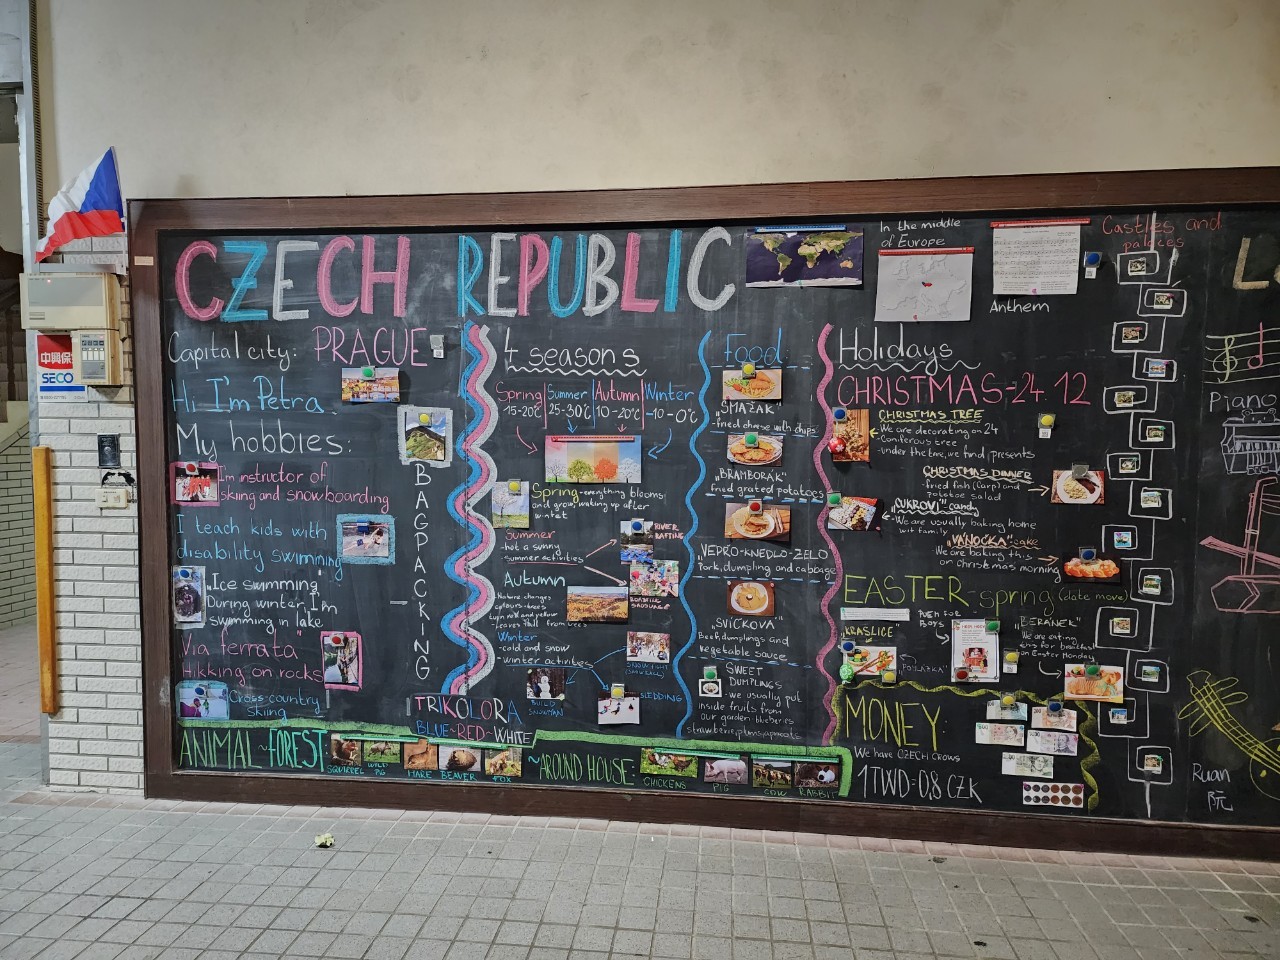 CZECH REPUBLIC
In the middle
of Europe
Anthem
Castles and
palaces
Capital city: PRAGUE
Hi I'm Petra.
My hobbies:
Im instructor of
skiing and snowboarding
I teach kids with
disability swimming
"Ice swimming
During winter I'm
swimming in lake
"Via ferrata"
Hikking on rocks
Cross-country
skiing
BAGPACKING
TRIKOLORA
BLUE-RED-WHITE
4 seasons
Spring Summer Autumn Winter
15-20°C 25-30°C 10-20°C -10-0°C
Spring-everything blooms
and grow, waking up after
winter
Summer
-hot a sunny
-summer activities
RIVER
RAFTING
ROASTING
SAUSAGE
Autumn
-Nature changes
colours-trees
turn red and yellow
-Leaves fall from trees
Winter
-cold and snow
-winter activities
BUILD
SNOWMAN
SLEDDING
Food:
"SMAŽÁK"
-fried cheese with chips
"BRAMBORÁK"
fried grated potatoes
"VEPŘO-KNEDLO-ZELO
Pork, dumpling and cabbage
"SVÍČKOVÁ"
Beef, dumplings and
vegetable sauce
SWEET
DUMPLINGS
-we usually put
inside fruits from
our garden: blueberies
strawberies, plums, apricots
Holidays
CHRISTMAS-24 12
CHRISTMAS TREE
-We are decorating on 24
-Coniferous tree
-under the tree, we find presents
CHRISTMAS DINNER
-fried fish (carp) and
potatoe salad
"CUKROVÍ" candy
-We are usually baking home
with family
"VÁNOČKA" cake
-We are baking this
on christmas morning
EASTER-spring (date move)
"KRASLICE"
"POMLÁZKA"
"BERÁNEK"
We are eating
on Easter Monday
MONEY:
We have CZECH CROWS
1TWD-0,8 CZK
ANIMAL ~ FOREST
SQUIRREL WILD PIG HARE BEAVER FOX
~AROUND HOUSE:
CHICKENS PIG COW RABBIT
Piano
Ruan
阮
SECO